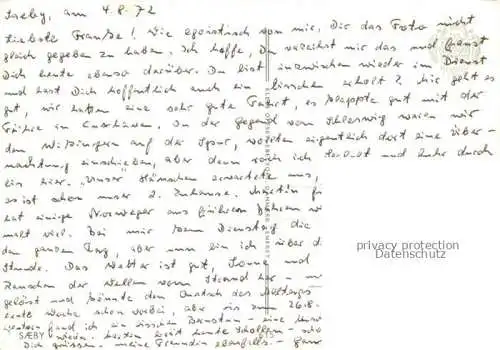 Saeby, am 4.8.72
Liebste Frauke! Wie egoistisch von mir, Dir das Foto nicht
gleich gegeben zu haben. Ich hoffe, Du verzeihst mir das und freust
Dich heute ebenso darüber. Du bist inzwischen wieder im Dienst
und hast Dich hoffentlich auch ein bisschen erholt? Mir geht es
gut, wir hatten eine sehr gute Fahrt, es klappte gut mit der
Fähre in Cuxhaven. In der Gegend von Schleswig waren wir
den Wikingern auf der Spur, wollten eigentlich dort eine Über-
nachtung einschieben, aber dann und Ruhe durch
bis hier. "Unser" Häuschen erwartete uns,
es ist schon unser 2. Zuhause. Martin
hat einige Norweger aus früheren Jahren
malt viel. Bei mir vom Dienstag die
den ganzen Tag, aber nun bin ich über d
Stunde. Das Wetter ist gut, Sonne und
Rauschen der Wellen vom Strand her -
gelöst und könnte den Quatsch des
erste Woche schon vorbei, aber bis zum 26.8.
gestern fand ich ein bisschen Bernstein - eine
SÆBY heute Schollen -
Dich grüssen - meine Freundin ebenfalls -
privacy protection
Datenschutz